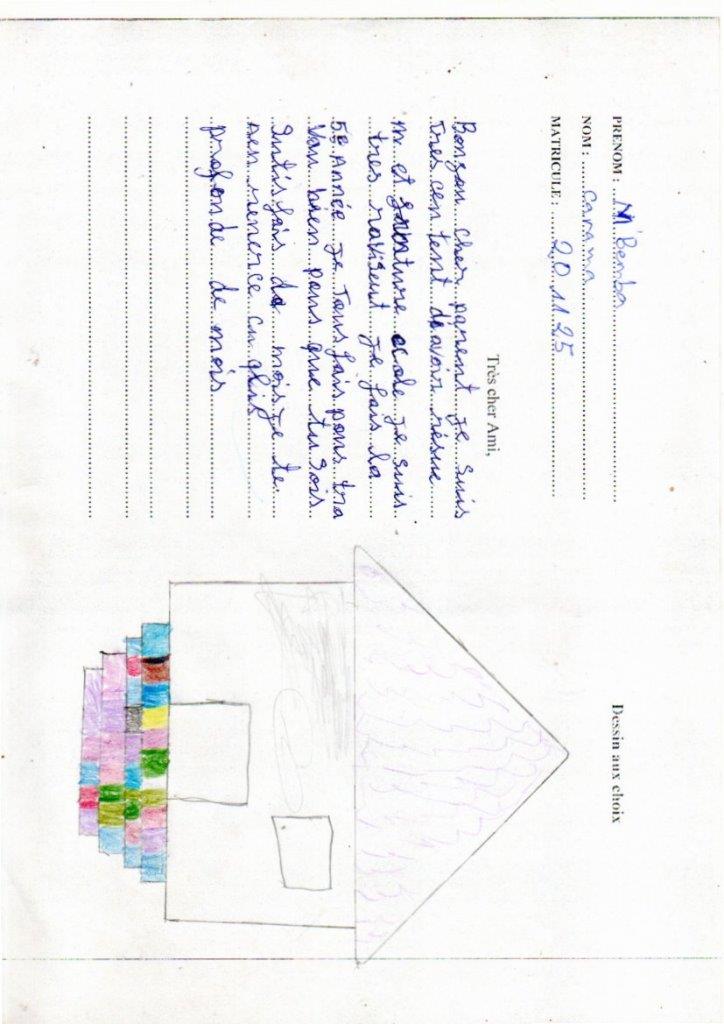 PRENOM : M'Bemba
NOM : Camara
MATRICULE : 201125
Très cher Ami,
Bonson cher parent Je suis
tres centent d'avoir résue
m et ecole Je suis
tres Je fais la
5e Année Je tous fais pons tra
Van bien pons que tu sois
Intis fais de mois Je te
ren renerce
profonde de mois
Dessin aux choix